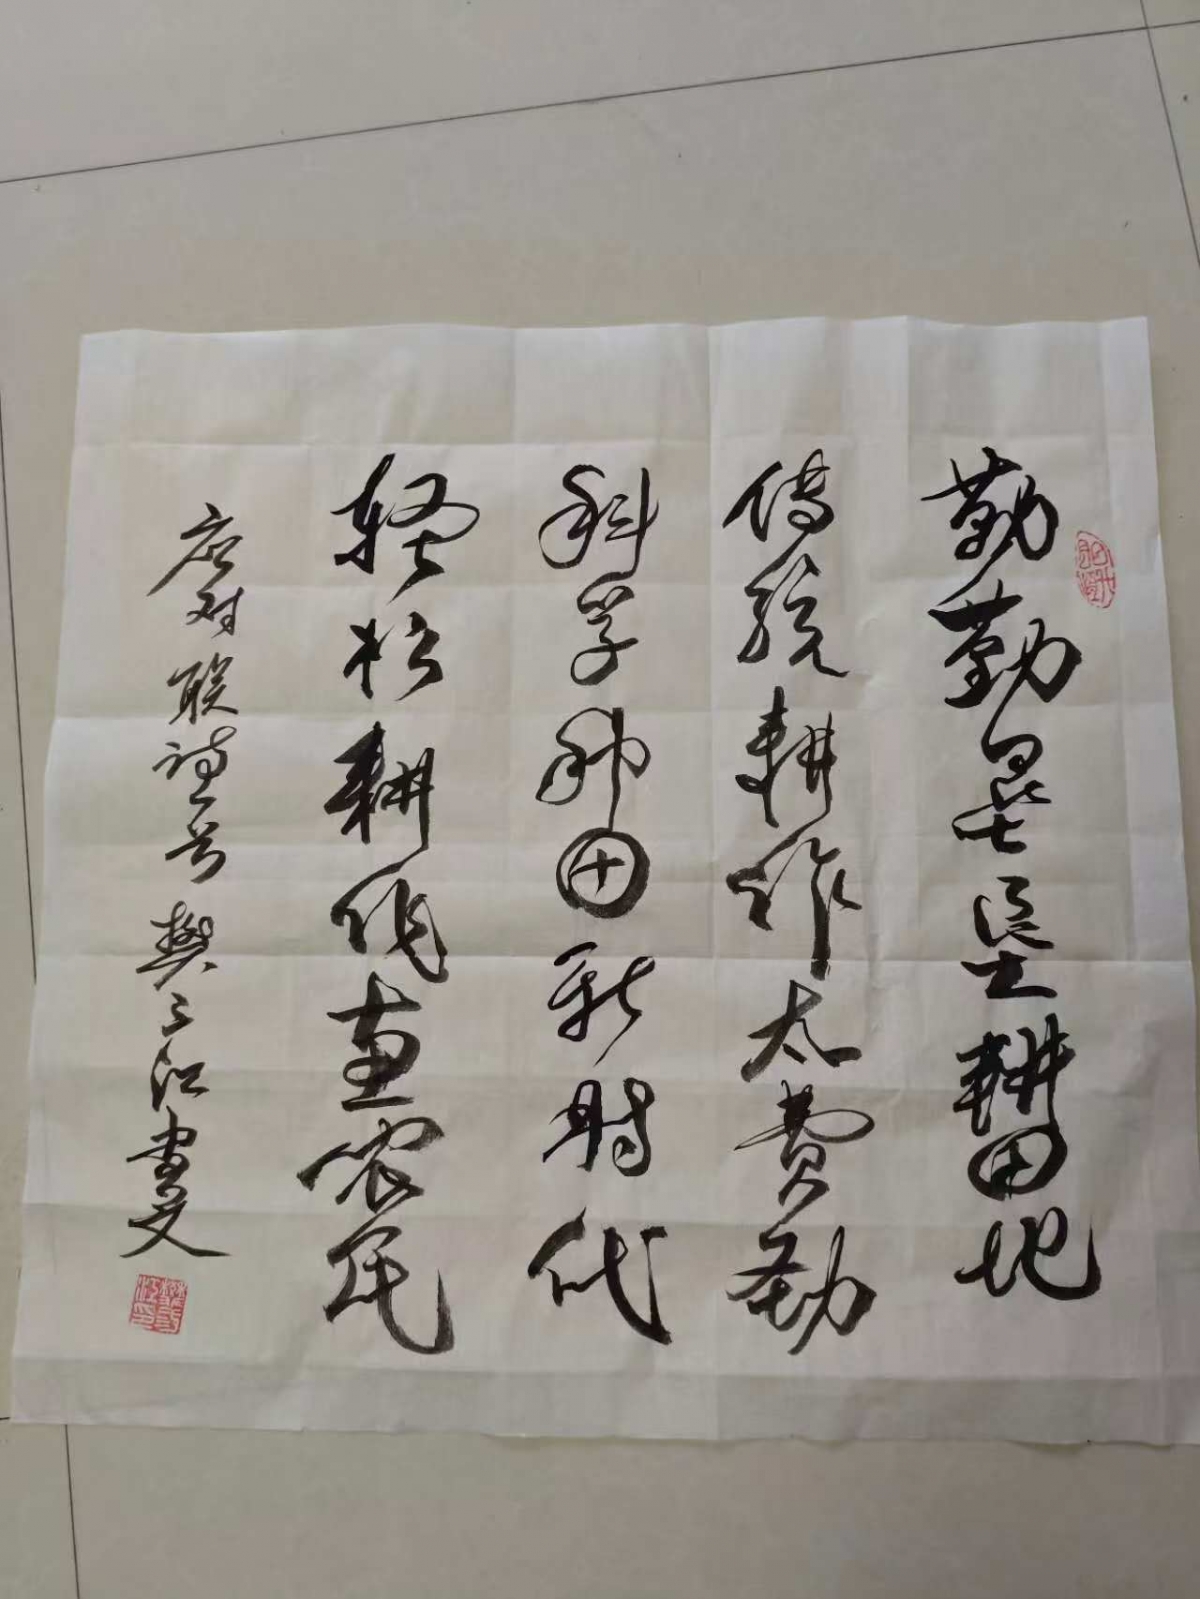 勤勤昆坚耕田地
传统耕作太费劲
科学种田新时代
轻松耕作惠农民
应对联诗
樊三江书